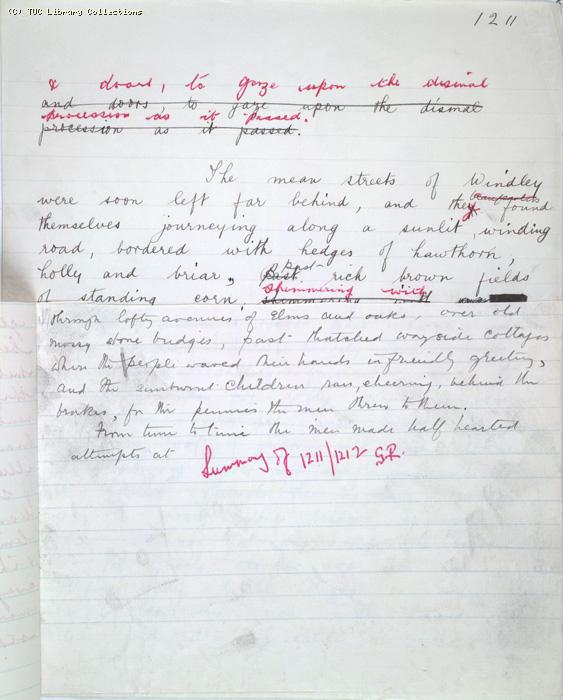 (C) TUC Library Collections
1211
& doors, to gaze upon the dismal
and doors, to gaze upon the dismal
procession as it passed.
procession as it passed.
The mean streets of Windley
were soon left far behind, and they found
themselves journeying along a sunlit, winding
road, bordered with hedges of hawthorn,
past-
holly and briar, Past rich brown fields
shimmering with
of standing corn, shimmering with
through lofty avenues of Elms and oaks, over old
mossy stone bridges, past thatched wayside cottages
where the people waved their hands in friendly greeting,
and the sunburnt children ran, cheering, behind the
brakes, for the pennies the men threw to them.
From time to time the men made half hearted
attempts at
Summary of 1211/1212 G.R.